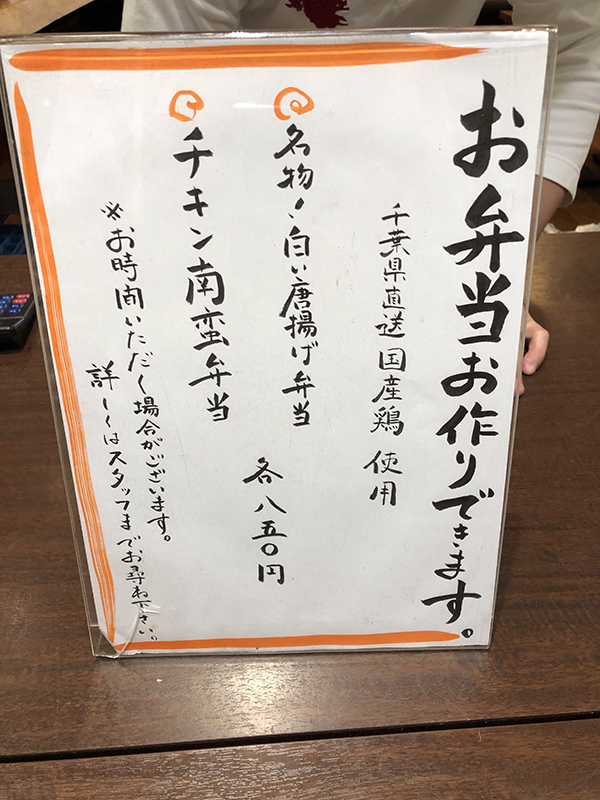 お弁当お作りできます。
千葉県直送国産鶏 使用
名物!白い唐揚げ弁当
チキン南蛮弁当
各八五〇円
※お時間いただく場合がございます。
詳しくはスタッフまでお尋ね下さい。